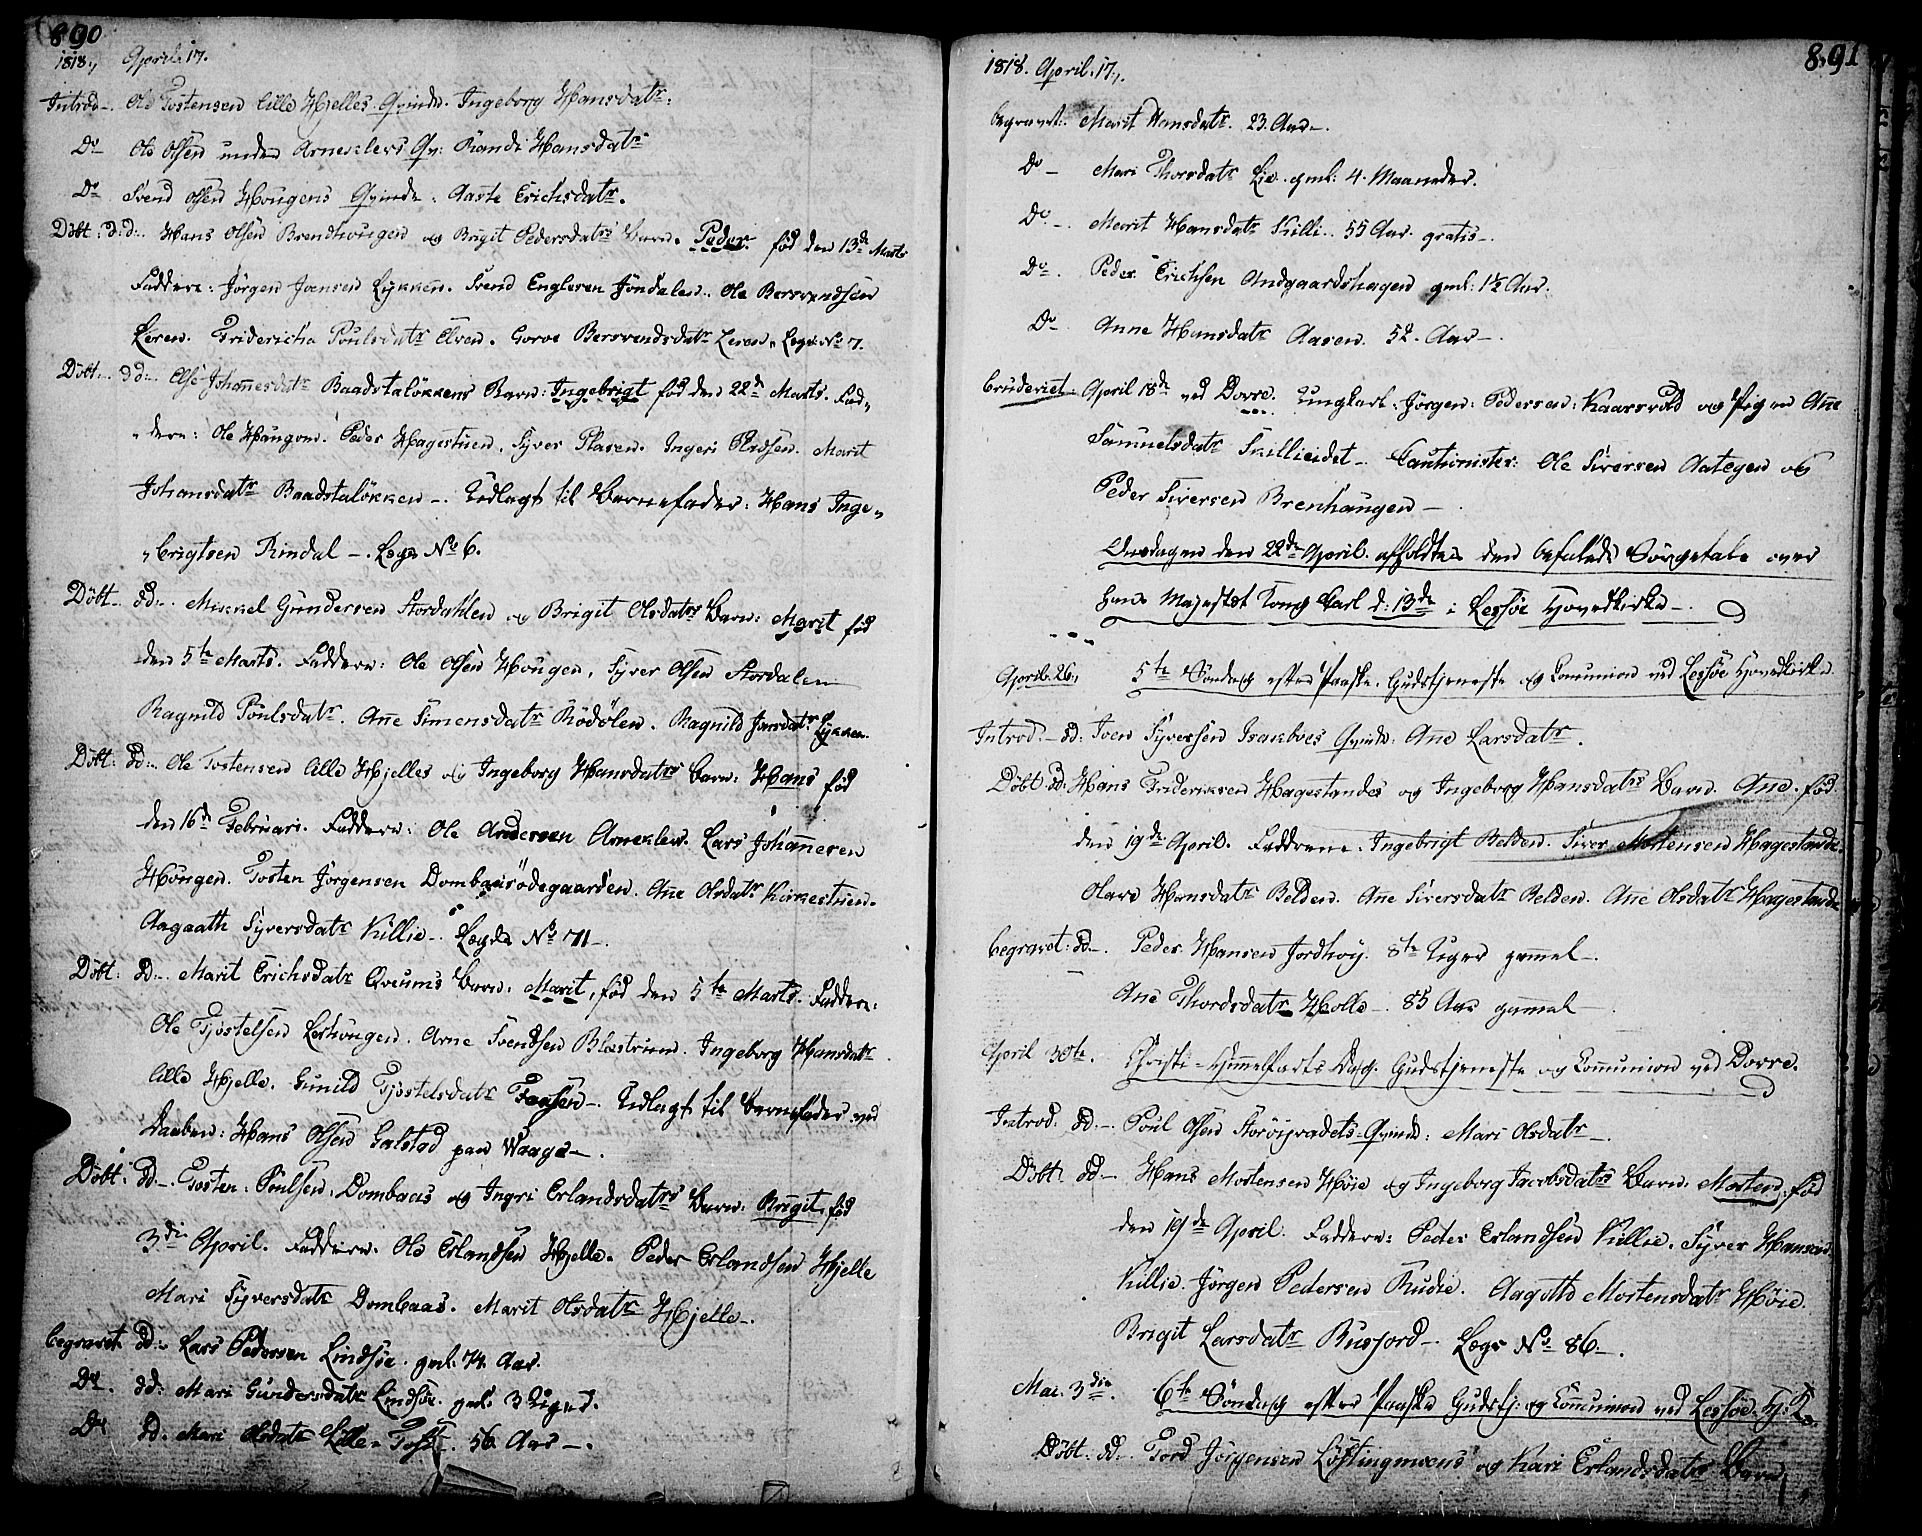 890
1818, April. 17.
Introd. Ole Tostensen Lille Hjelles Qvinde. Ingeborg Hansdatr.
Do Ole Olsen under Arneklevs Qv: Randi Hansdatr
Do Svend Olsen Hougens Qvinde. Aaste Erichsdatr.
Döbt. d:d: Hans Olsen Brendhougen og Brigit Pedersdatrs Barn. Peder. föd den 13de Marts
Faddere: Jörgen Joensen Lykken. Svend Engleren Jöndalen. Ole Bersvendsen
Leren. Fridericha Poulsdatr Elven. Gorve Bersvendsdatr Leren. Legd No 7.
Döbt. dd: Else Johannesdatr Baadstalökkens Barn: Ingebrigt föd den 22de Marts. Fad„
„dere: Ole Haugom. Peder Hagestuen. Syver Plasen. Ingeri Pladsen. Marit
Johansdatr Baadstalökken. Udlagt til Barnefader: Hans Inge„
„brigtsen Rindal. Legd No 6.
Döbt. dd. Mikkel Gundersen Stordahlen og Brigit Olsdatrs Barn: Marit föd
den 5te Marts. Faddere: Ole Olsen Hougen, Syver Olsen Stordalen
Ragnild Poulsdatr. Ane Simensdatr Rödölen. Ragnild Jonsdatr Lykken.
Döbt: dd: Ole Tostensen Lille Hjelles og Ingeborg Hansdatrs Barn: Hans föd
den 16de Februari. Faddere: Ole Andersen Arneklev. Lars Johannesen
Hougen. Tosten Jörgensen Dombaasödegaarden. Ane Olsdatr Kirkestuen.
Aagaath Syversdatr Killie. Legds No 71.
Döbt: dd: Marit Erichsdatr Qveums Barn: Marit, föd den 5te Marts. Faddere:
Ole Tjostelsen Leshougen. Arne Svendsen Blæstrien. Ingeborg Hansdatr
lille Hjelle. Gunild Tjostelsdatr. Udlagt til Barnefader ved
Daaben: Hans Olsen Galstad paa Waage.
Döbt: dd. Tosten Poulsen Dombaas og Ingri Erlandsdatrs Barn: Brigit föd
3die April. Faddere. Ole Erlandsen Hjelle. Peder Erlandsen Hjelle
Mari Syversdatr Dombaas. Marit Olsdatr Hjelle.
begravet dd: Lars Pedersen Lindsöe. gml. 74. Aar.
Do. dd: Mari Gundersdatr Lindsöe. gml. 3 Uger.
Do dd. Mari Olsdatr Lille. 56 Aar.
891
1818. April. 17.
begravet: Marit Hansdatr. 23. Aar.
Do Mari Thorsdatr Lie. gml: 4. Maaneder.
Do Marit Hansdatr Killi. 55 Aar. gratis.
Do. Peder Erichsen Andgaardshagen gml: 1½ Aar.
Do Anne Hansdatr Aasen. 52. Aar.
Cruderiet: April 18de ved Dovre. Ungkarl: Jörgen Pedersen Kaarsvold og Pigen Ane
Samuelsdatr Skillieidet. Cautionister: Ole Siversen Aategen og
Peder Siversen Brenhaugen.
Onsdagen den 22de April. afholdtes den befalede Sörgetale over
hans Majestæt Kong Carl d: 13de i Lessöe Hovedkirke.
April. 26. 5te Söndag efter Paaske. Gudstjeneste og Comunion ved Lessöe Hovedkirke.
Introd. dd: Iven Syversen Isakboes Qvinde: Ane Larsdatr.
Döbt: dd: Hans Frideriksen Hagestandes og Ingeborg Hansdatrs Barn. Ane. föd
den 19de April. Faddrene. Ingebrigt Belden. Siver Mortensen Hagestande.
Olave Hansdatr Belden. Ane Siversdatr Belden. Ane Olsdatr Hagestande
begravet: dd. Peder Hansen Jordhöy. 8te Uger gamel.
Ane Thordsdatr Holle. 85 Aar gamel
April 30te. Christi Himmelfarts Dag. Gudstjeneste og Communion ved Dovre.
Introd: dd: Poul Olsen Qvinde: Mari Olsdatr.
Döbt. dd. Hans Mortensen Höie og Ingeborg Jacobsdatrs Barn. Morten, föd
den 19de April. Faddere: Peder Erlandsen Killie. Syver Hansen
Killie. Jörgen Pedersen Rudie. Aagotte Mortensdatr Höie.
Brigit Larsdatr Busjord. Legd No 86.
Mai. 3die. 6te Söndag efter Paaske Gudstj: og Comunion ved Lessöe H: K.
Döbt: dd: Tord Jörgensen Löftingmoens og Kari Erlandsdatrs Barn